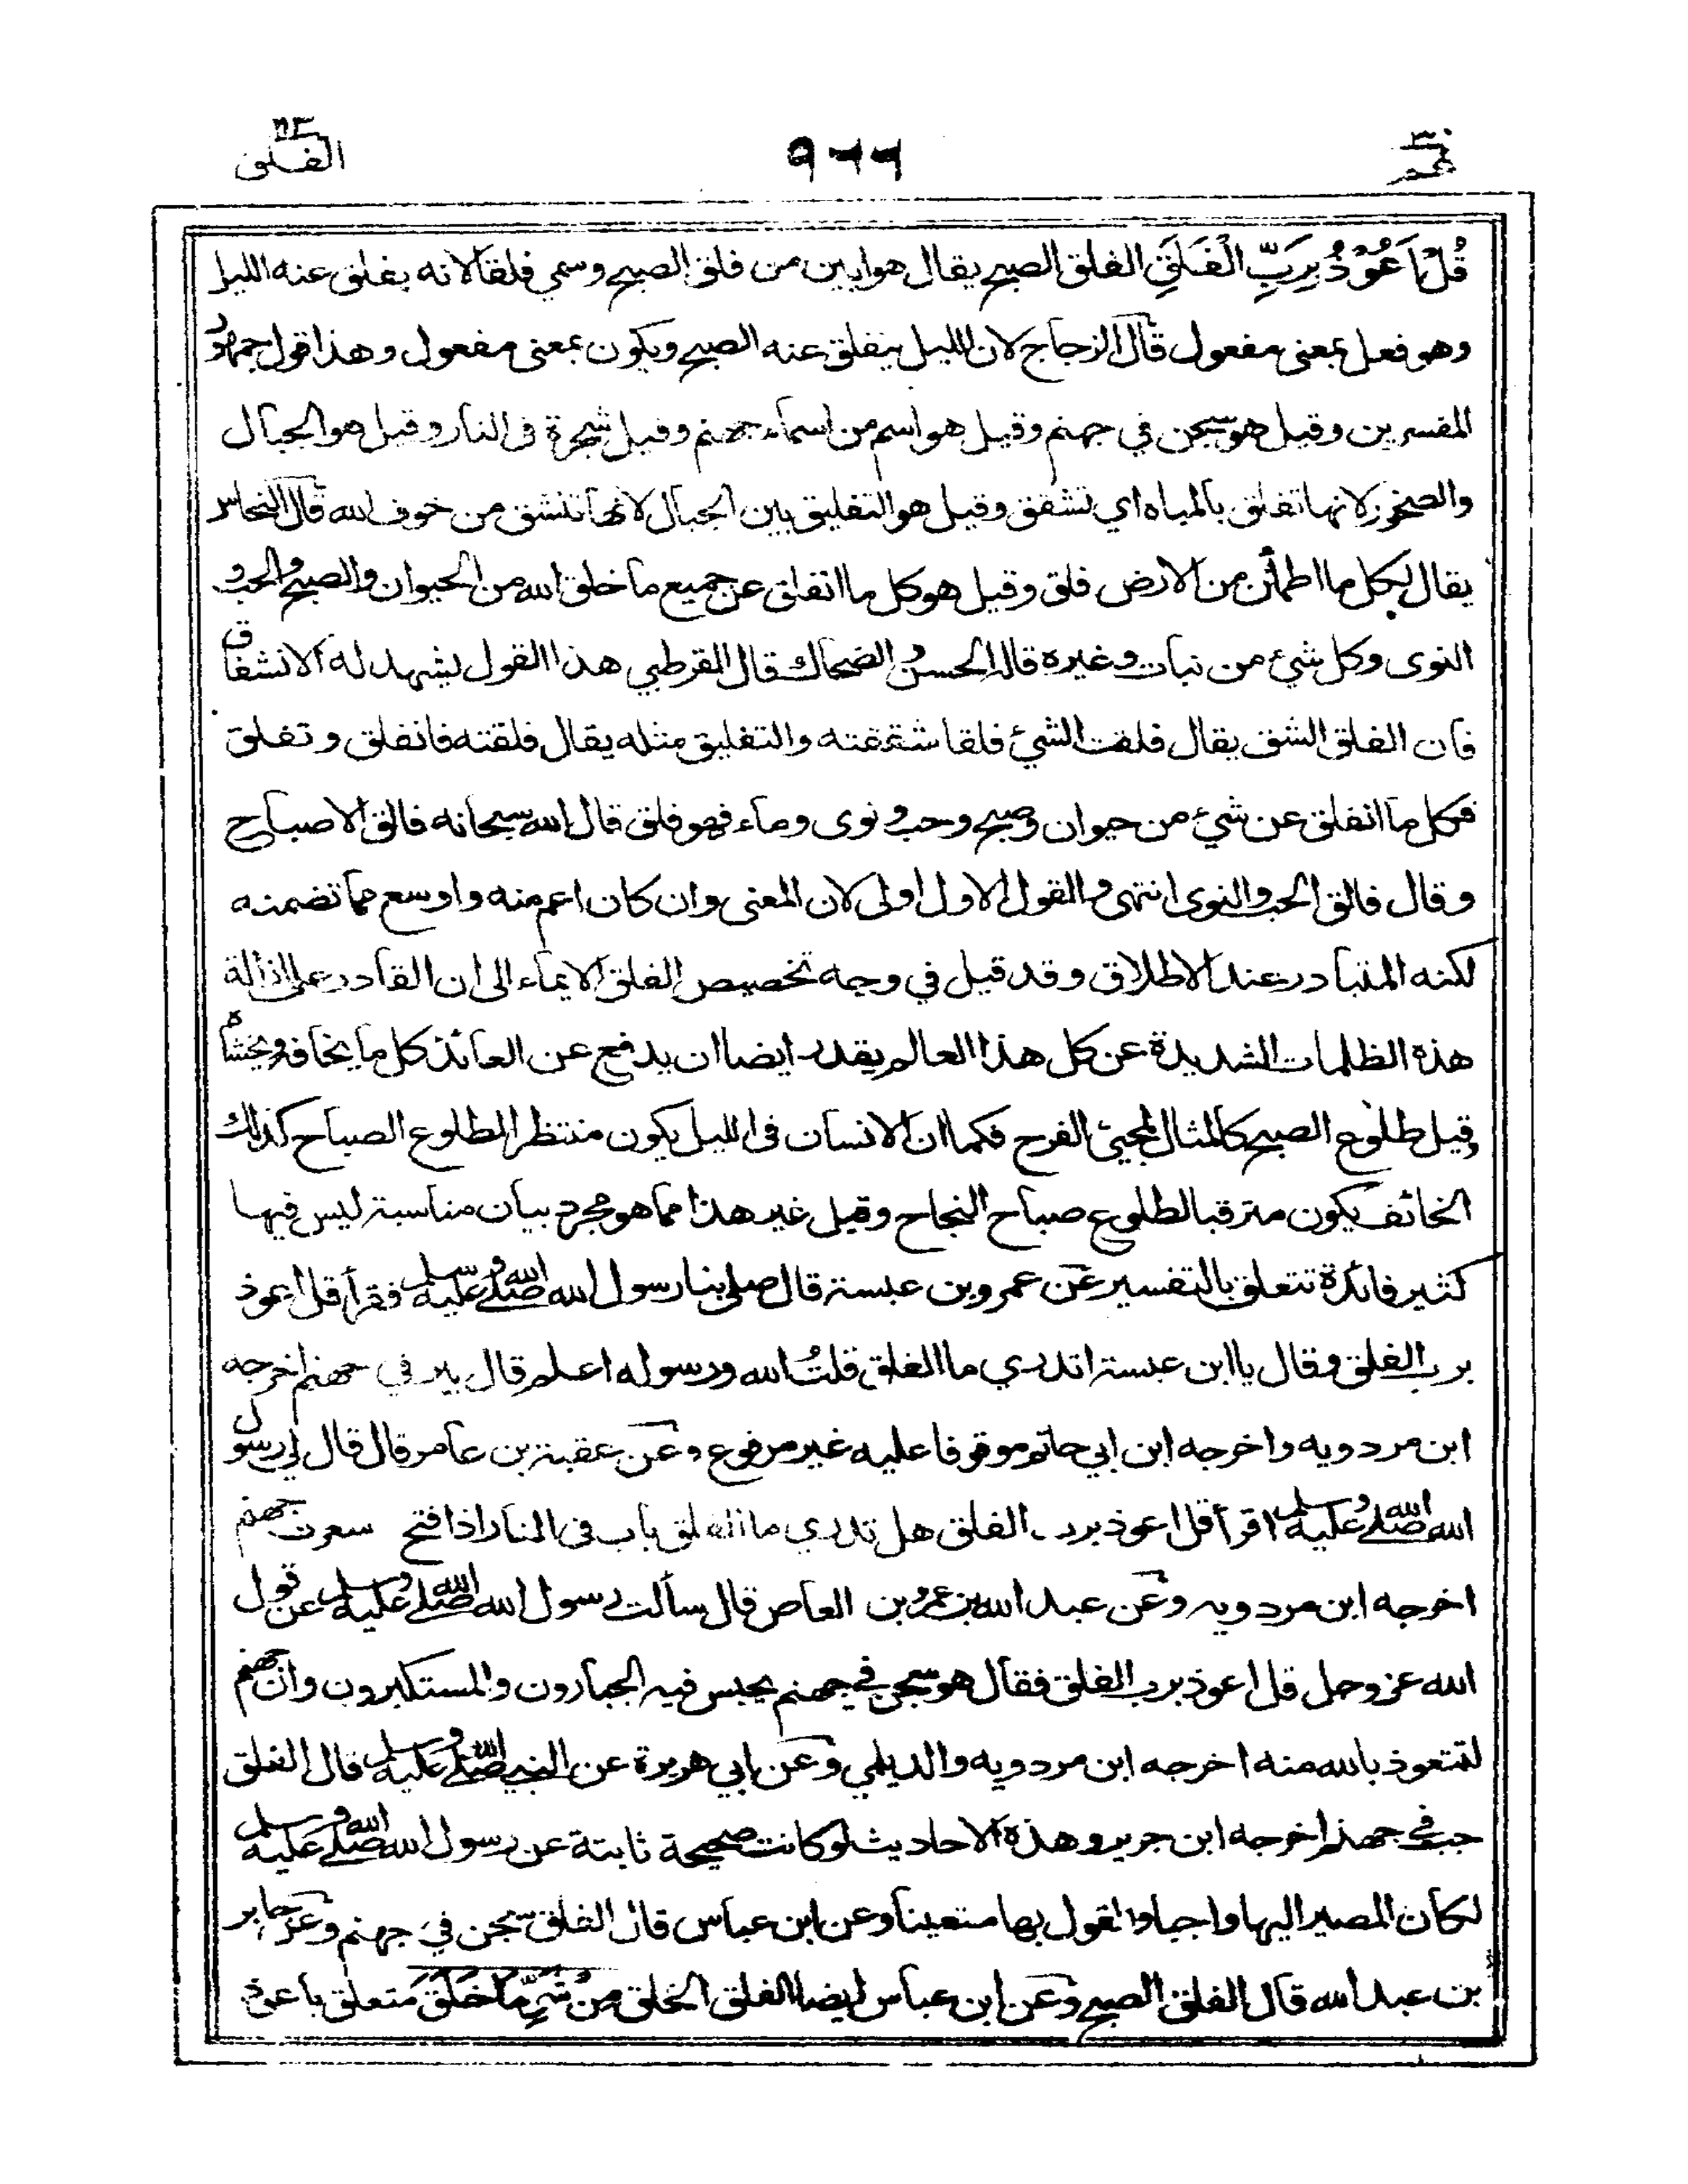 عم ٣٠
الفلق ١١٣
قُلْ اَعُوْذُ بِرَبِّ الْفَلَقِ الفلق الصبح يقال هو ابين من فلق الصبح وسمي فلقا لانه يفلق عنه الليل
وهو فعل بمعنى مفعول قال الزجاج لان الليل ينفلق عنه الصبح ويكون بمعنى مفعول وهذا قول جمهور
المفسرين وقيل هو سجن في جهنم وقيل هو اسم من اسماء جهنم وقيل شجرة فى النار وقيل هو الجبال
والصخور لانها تفلق بالمياه اي تشقق وقيل هو التفليق بين الجبال لانها تنشق من خوف الله قال النحاس
يقال لكل ما اطمأن من الارض فلق وقيل هو كل ما انفلق عن جميع ما خلق الله من الحيوان والصبح والحب و
النوى وكل شئ من نبات وغيره قاله الحسن و الضحاك قال القرطبي هذا القول يشهد له الانشقاق
فان الفلق الشق يقال فلقت الشئ فلقا شققته والتفليق مثله يقال فلقته فانفلق وتفلق
فكل ما انفلق عن شئ من حيوان وصبح وحب و نوى وماء فهو فلق قال الله سبحانه فالق الاصباح
وقال فالق الحب والنوى انتهى والقول الاول اولى لان المعنى وان كان اعم منه واوسع مما تضمنه
لكنه المتبادر عند الاطلاق وقد قيل في وجه تخصيص الفلق الايماء الى ان القادر على ازالة
هذه الظلمات الشديدة عن كل هذا العالم يقدر ايضا ان يدفع عن العائذ كل ما يخافه ويخشاه
وقيل طلوع الصبح كالمثال لمجيئ الفرح فكما ان الانسان فى الليل يكون منتظرا لطلوع الصباح كذلك
الخائف يكون مترقبا لطلوع صباح النجاح وقيل غير هذا مما هو مجرد بيان مناسبة ليس فيها
كثير فائدة تتعلق بالتفسير عن عمرو بن عبسة قال صلى بنا رسول الله صلى الله عليه وسلم فقرأ قل اعوذ
برب الفلق وقال يا ابن عبسة اتدري ما الفلق قلت الله ورسوله اعلم قال بير في جهنم اخرجه
ابن مردويه واخرجه ابن ابي حاتم موقوفا عليه غير مرفوع وعن عقبة بن عامر قال قال لي رسول
الله صلى الله عليه وسلم اقرأ قل اعوذ برب الفلق هل تدري ما الفلق باب فى النار اذا فتح سعرت جهنم
اخرجه ابن مردويه وعن عبد الله بن عمرو بن العاص قال سألت رسول الله صلى الله عليه وسلم عن قول
الله عز وجل قل اعوذ برب الفلق فقال هو سجن في جهنم يحبس فيه الجبارون والمستكبرون وان جهنم
لتتعوذ بالله منه اخرجه ابن مردويه والديلمي وعن ابي هريرة عن النبي صلى الله عليه وسلم قال الفلق
جب في جهنم اخرجه ابن جرير وهذه الاحاديث لو كانت صحيحة ثابتة عن رسول الله صلى الله عليه وسلم
لكان المصير اليها واجبا والقول بها متعينا وعن ابن عباس قال الفلق سجن في جهنم وعن جابر
بن عبد الله قال الفلق الصبح وعن ابن عباس ايضا الفلق الخلق مِنْ شَرِّ مَا خَلَقَ متعلق باعوذ